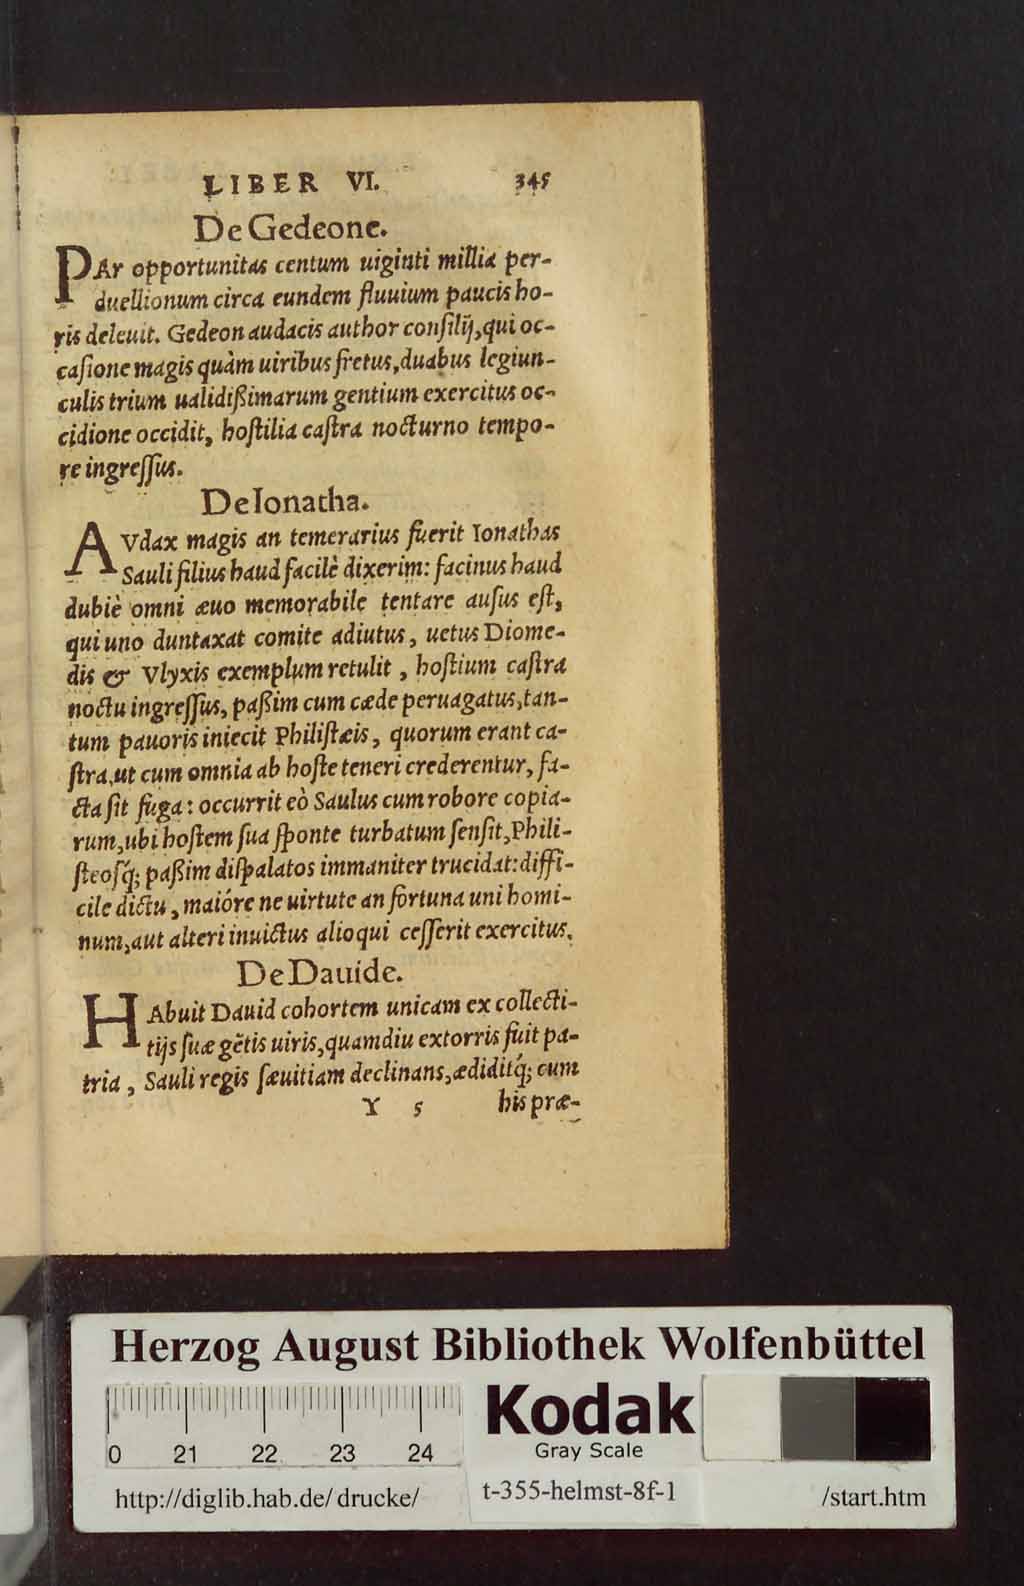 LIBER VI. 345
De Gedeone.
PAr opportunitas centum uiginti millia per-
duellionum circa eundem fluuium paucis ho-
ris deleuit. Gedeon audacis author consilij, qui oc-
casione magis quàm uiribus fretus, duabus legiun-
culis trium ualidißimarum gentium exercitus oc-
cidione occidit, hostilia castra nocturno tempo-
re ingressus.
De Ionatha.
AVdax magis an temerarius fuerit Ionathas
Sauli filius haud facilè dixerim: facinus haud
dubiè omni æuo memorabile tentare ausus est,
qui uno duntaxat comite adiutus, uetus Diome-
dis & Vlyxis exemplum retulit, hostium castra
noctu ingressus, paßim cum cæde peruagatus, tan-
tum pauoris iniecit Philistæis, quorum erant ca-
stra, ut cum omnia ab hoste teneri crederentur, fa-
cta sit fuga: occurrit eò Saulus cum robore copia-
rum, ubi hostem sua sponte turbatum sensit, Phili-
steosq́; paßim dispalatos immaniter trucidat: diffi-
cile dictu, maióre ne uirtute an fortuna uni homi-
num, aut alteri inuictus alioqui cesserit exercitus.
De Dauide.
HAbuit Dauid cohortem unicam ex collecti-
tijs suæ gẽtis uiris, quamdiu extorris fuit pa-
tria, Sauli regis sæuitiam declinans, ædiditq́; cum
Y 5 his præ-
Herzog August Bibliothek Wolfenbüttel
0 21 22 23 24
Kodak
Gray Scale
http://diglib.hab.de/drucke/ t-355-helmst-8f-1 /start.htm